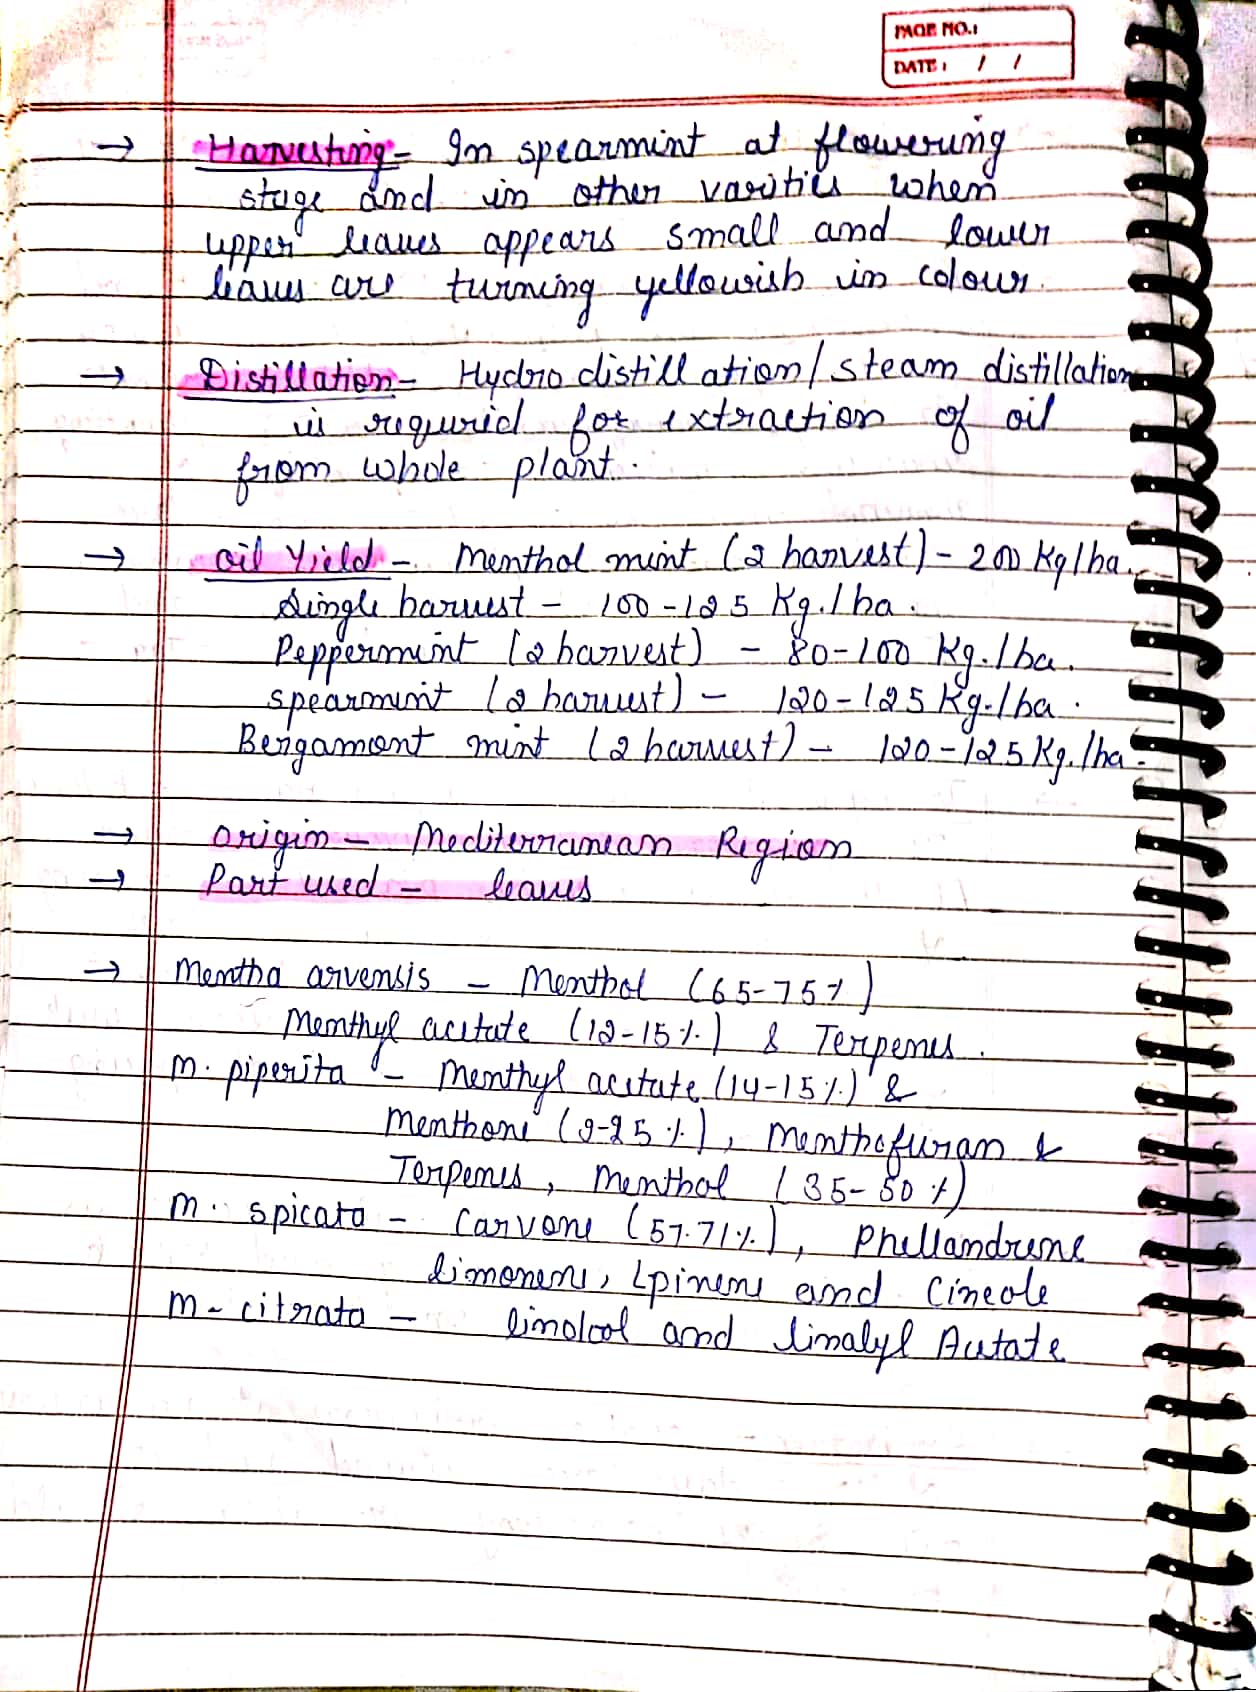 PAGE NO.:
DATE: / /
→ Harvesting - In spearmint at flowering
stage and in other varities when
upper leaves appears small and lower
leaves are turning yellowish in colour.
→ Distillation - Hydro distillation/steam distillation
is required for extraction of oil
from whole plant.
→ Oil Yield - Menthol mint (2 harvest) - 200 Kg/ha.
Single harvest - 100-125 Kg./ha.
Peppermint (2 harvest) - 80-100 Kg./ha.
Spearmint (2 harvest) - 120-125 Kg./ha.
Bergamont mint (2 harvest) - 120-125 Kg./ha.
→ Origin - Mediterranean Region
→ Part used - leaves
→ Mentha arvensis - Menthol (65-75%)
Menthyl acetate (12-15%) & Terpenes.
M. piperita - Menthyl acetate (14-15%) &
Menthone (9-25%), Menthofuran &
Terpenes, Menthol (35-50%)
M. spicata - Carvone (57.71%), Phellandrene
limonene, Lpinene and Cineole
M- citrata - linolool and linalyl Acetate